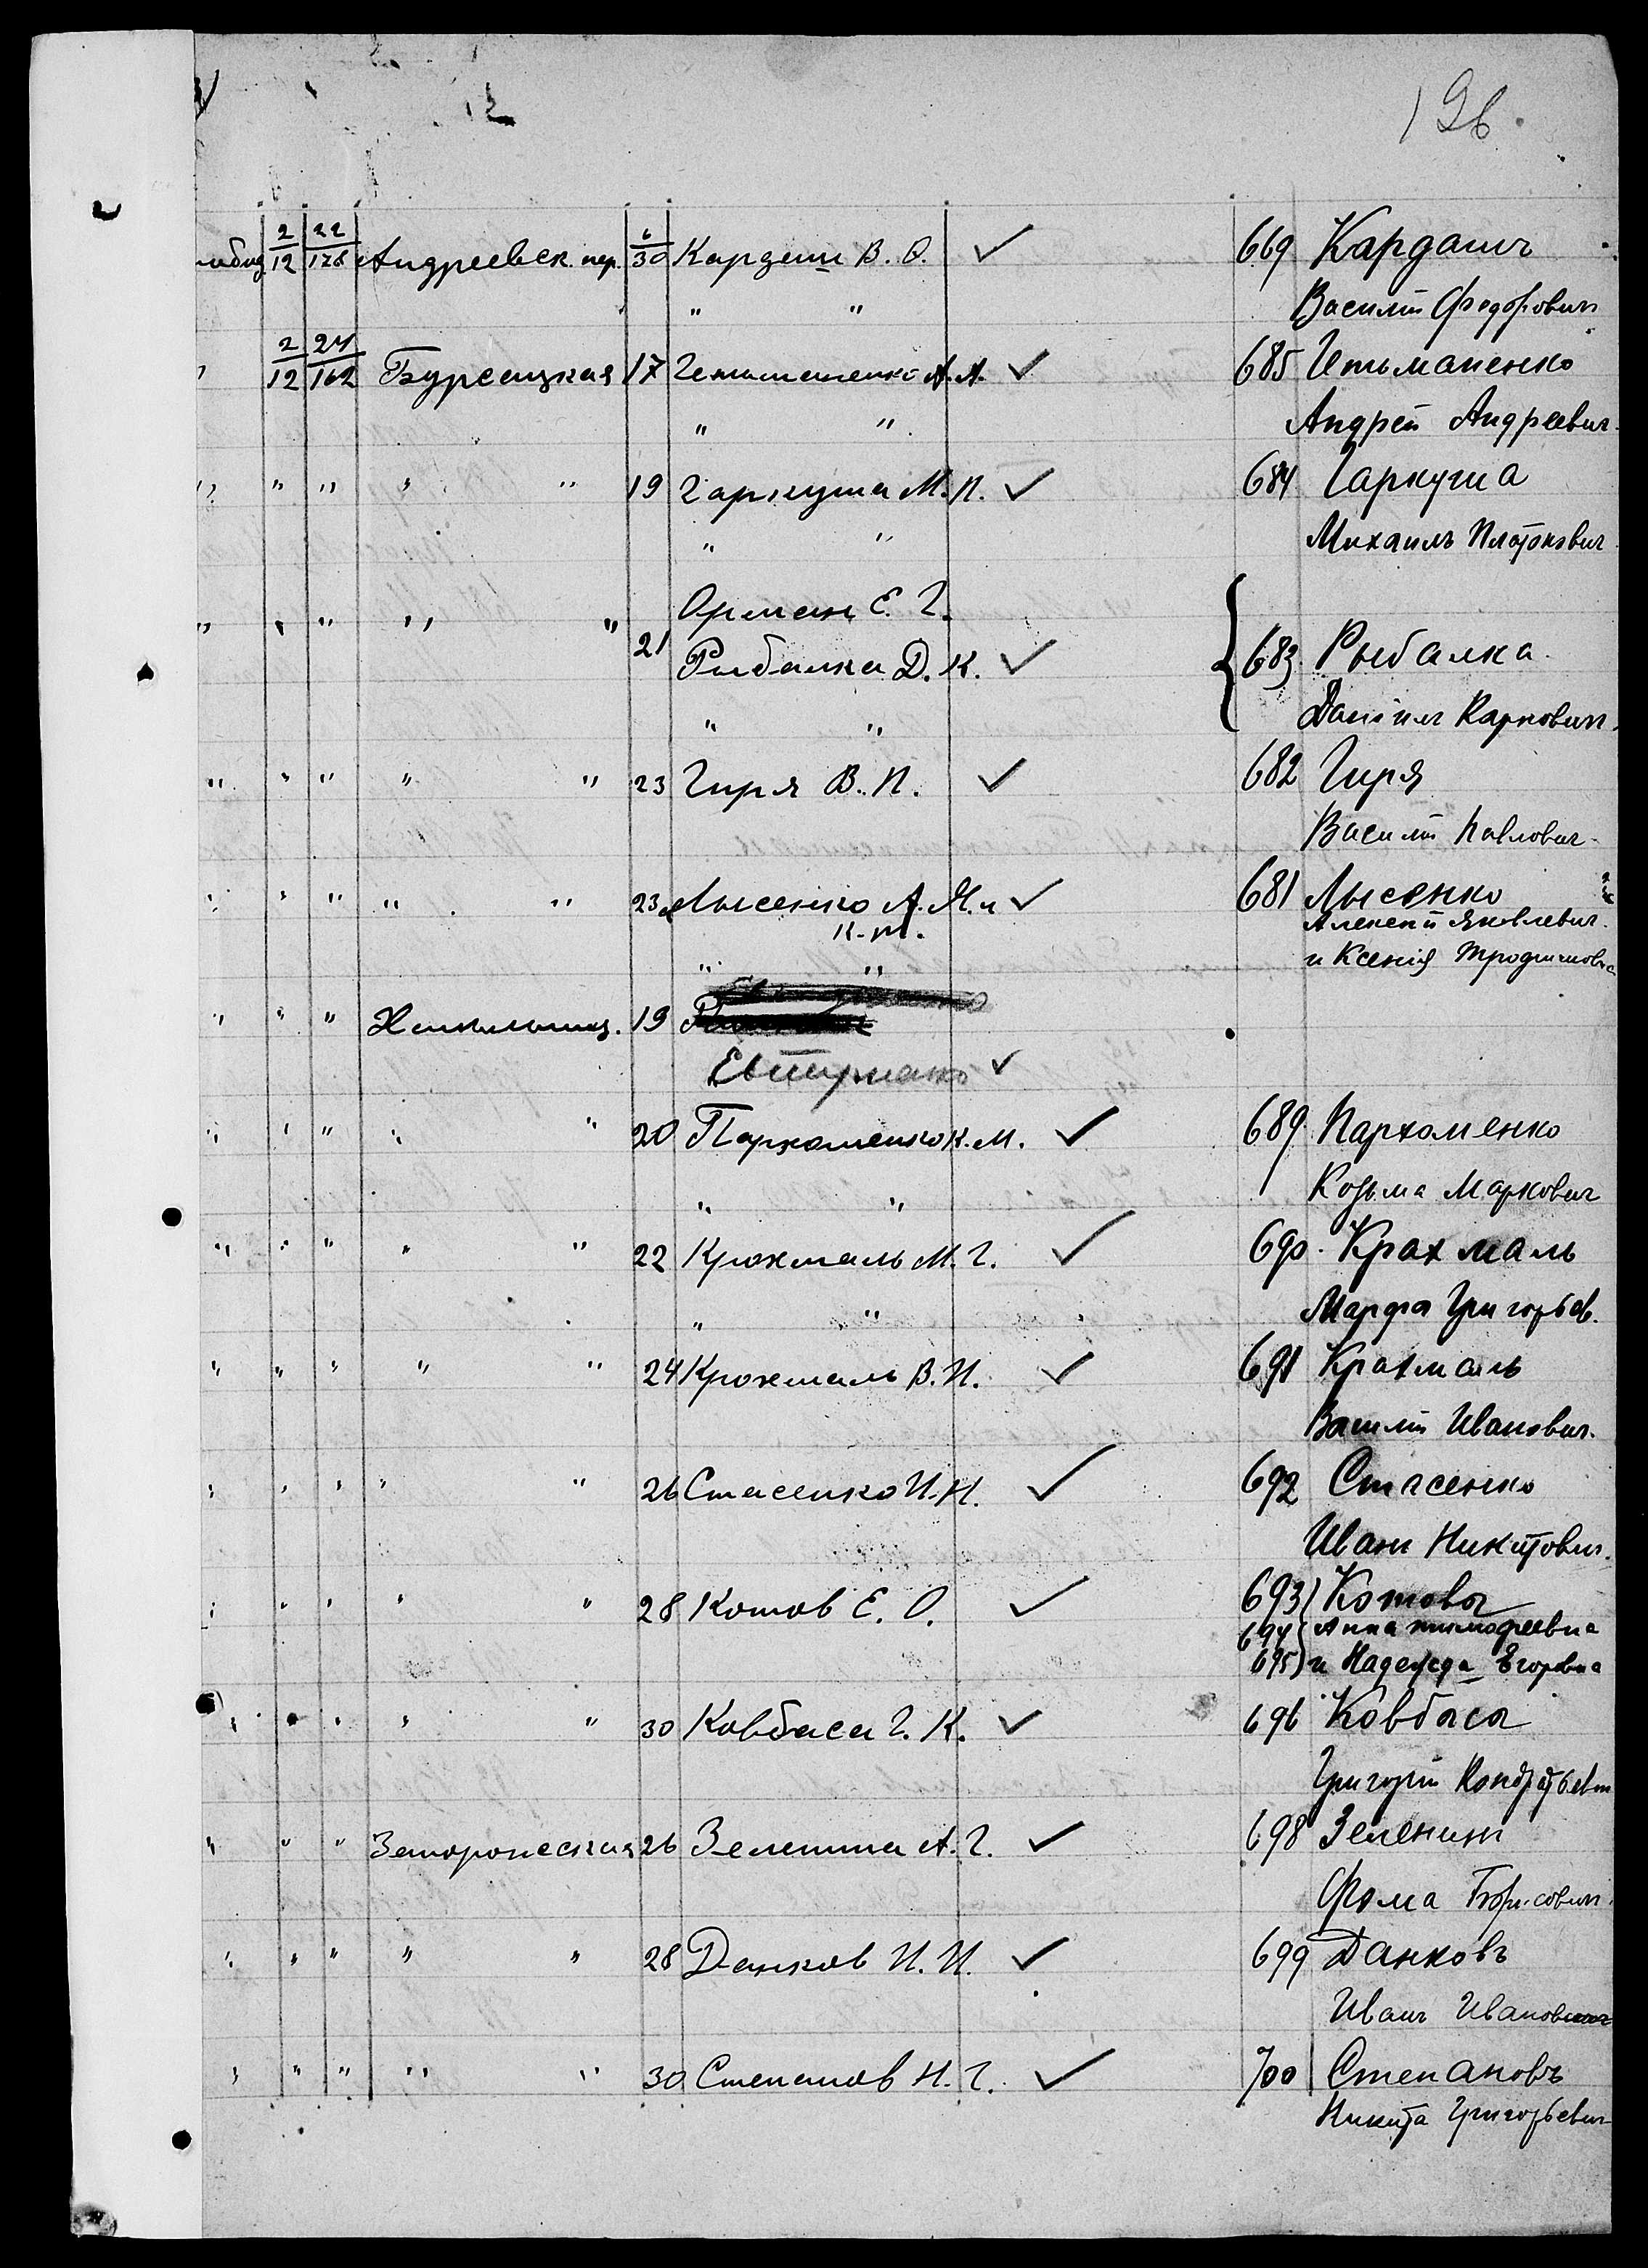 196.
2/12 22/176 Андреевск. пер. 6/30 Кардаш В. Ф. ✓ 669 Кардашъ
" " Василий Федорович
2/12 24/162 Бурсацкая 17 Гетманенко А. А. ✓ 685 Гетьманенко
" " Андрей Андреевич.
" " " " " 19 Гаркуша М. П. ✓ 684 Гаркуша
" " Михаилъ Платонович.
" " " " " Орман Е. Г.
21 Рыбалка Д. К. ✓ 683 Рыбалка.
" " Данiил Карпович.
" " " " " 23 Гиря В. П. ✓ 682 Гиря
Василий Павлович.
" " " " " 23 Лысенко А. Я. и ✓ 681 Лысенко
К. Т. Алексей Яковлевич.
" " и Ксенiя
" " " 19
Евтушенко ✓
" " " " " 20 Пархоменко К. М. ✓ 689 Пархоменко
" " Козьма Маркович
" " " " " 22 Крохмаль М. Г. ✓ 690. Крахмаль
" " Марфа Григорьев.
" " " " " 24 Крохмаль В. И. ✓ 691 Крахмаль
Василий Иванович.
" " " " " 26 Стасенко И. Н. ✓ 692 Стасенко
Иван Никитович.
" " " " " 28 Котов Е. О. ✓ 693 Котовы
694 Анна тимофеевна
695 и Надежда Егоровна
" " " " " 30 Ковбаса Г. К. ✓ 696 Ковбаса
Григорий Кондратьевич
" " " 26 А. Г. ✓ 698 Зеленин
Фома Борисович.
" " " " " 28 Данков И. И. ✓ 699 Данковъ
Иван Иванович
" " " " " 30 Степанов Н. Г. ✓ 700 Степановъ
Никита Григорьевич